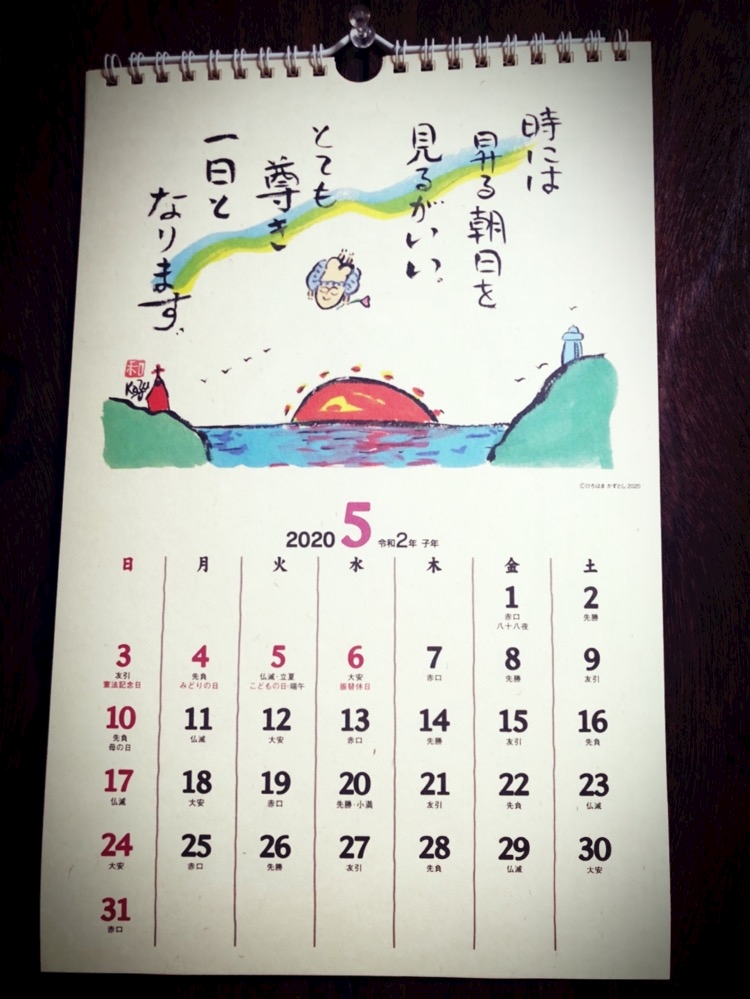 時には
昇る朝日を
見るがいい。
とても
尊き
一日と
なります。
和
Kazu
©ひろはま かずとし 2020
2020 5 令和2年 子年
日 月 火 水 木 金 土
1 2
赤口 先勝
八十八夜
3 4 5 6 7 8 9
友引 先負 仏滅・立夏 大安 赤口 先勝 友引
憲法記念日 みどりの日 こどもの日・端午 振替休日
10 11 12 13 14 15 16
先負 仏滅 大安 赤口 先勝 友引 先負
母の日
17 18 19 20 21 22 23
仏滅 大安 赤口 先勝・小満 友引 先負 仏滅
24 25 26 27 28 29 30
大安 赤口 先勝 友引 先負 仏滅 大安
31
赤口